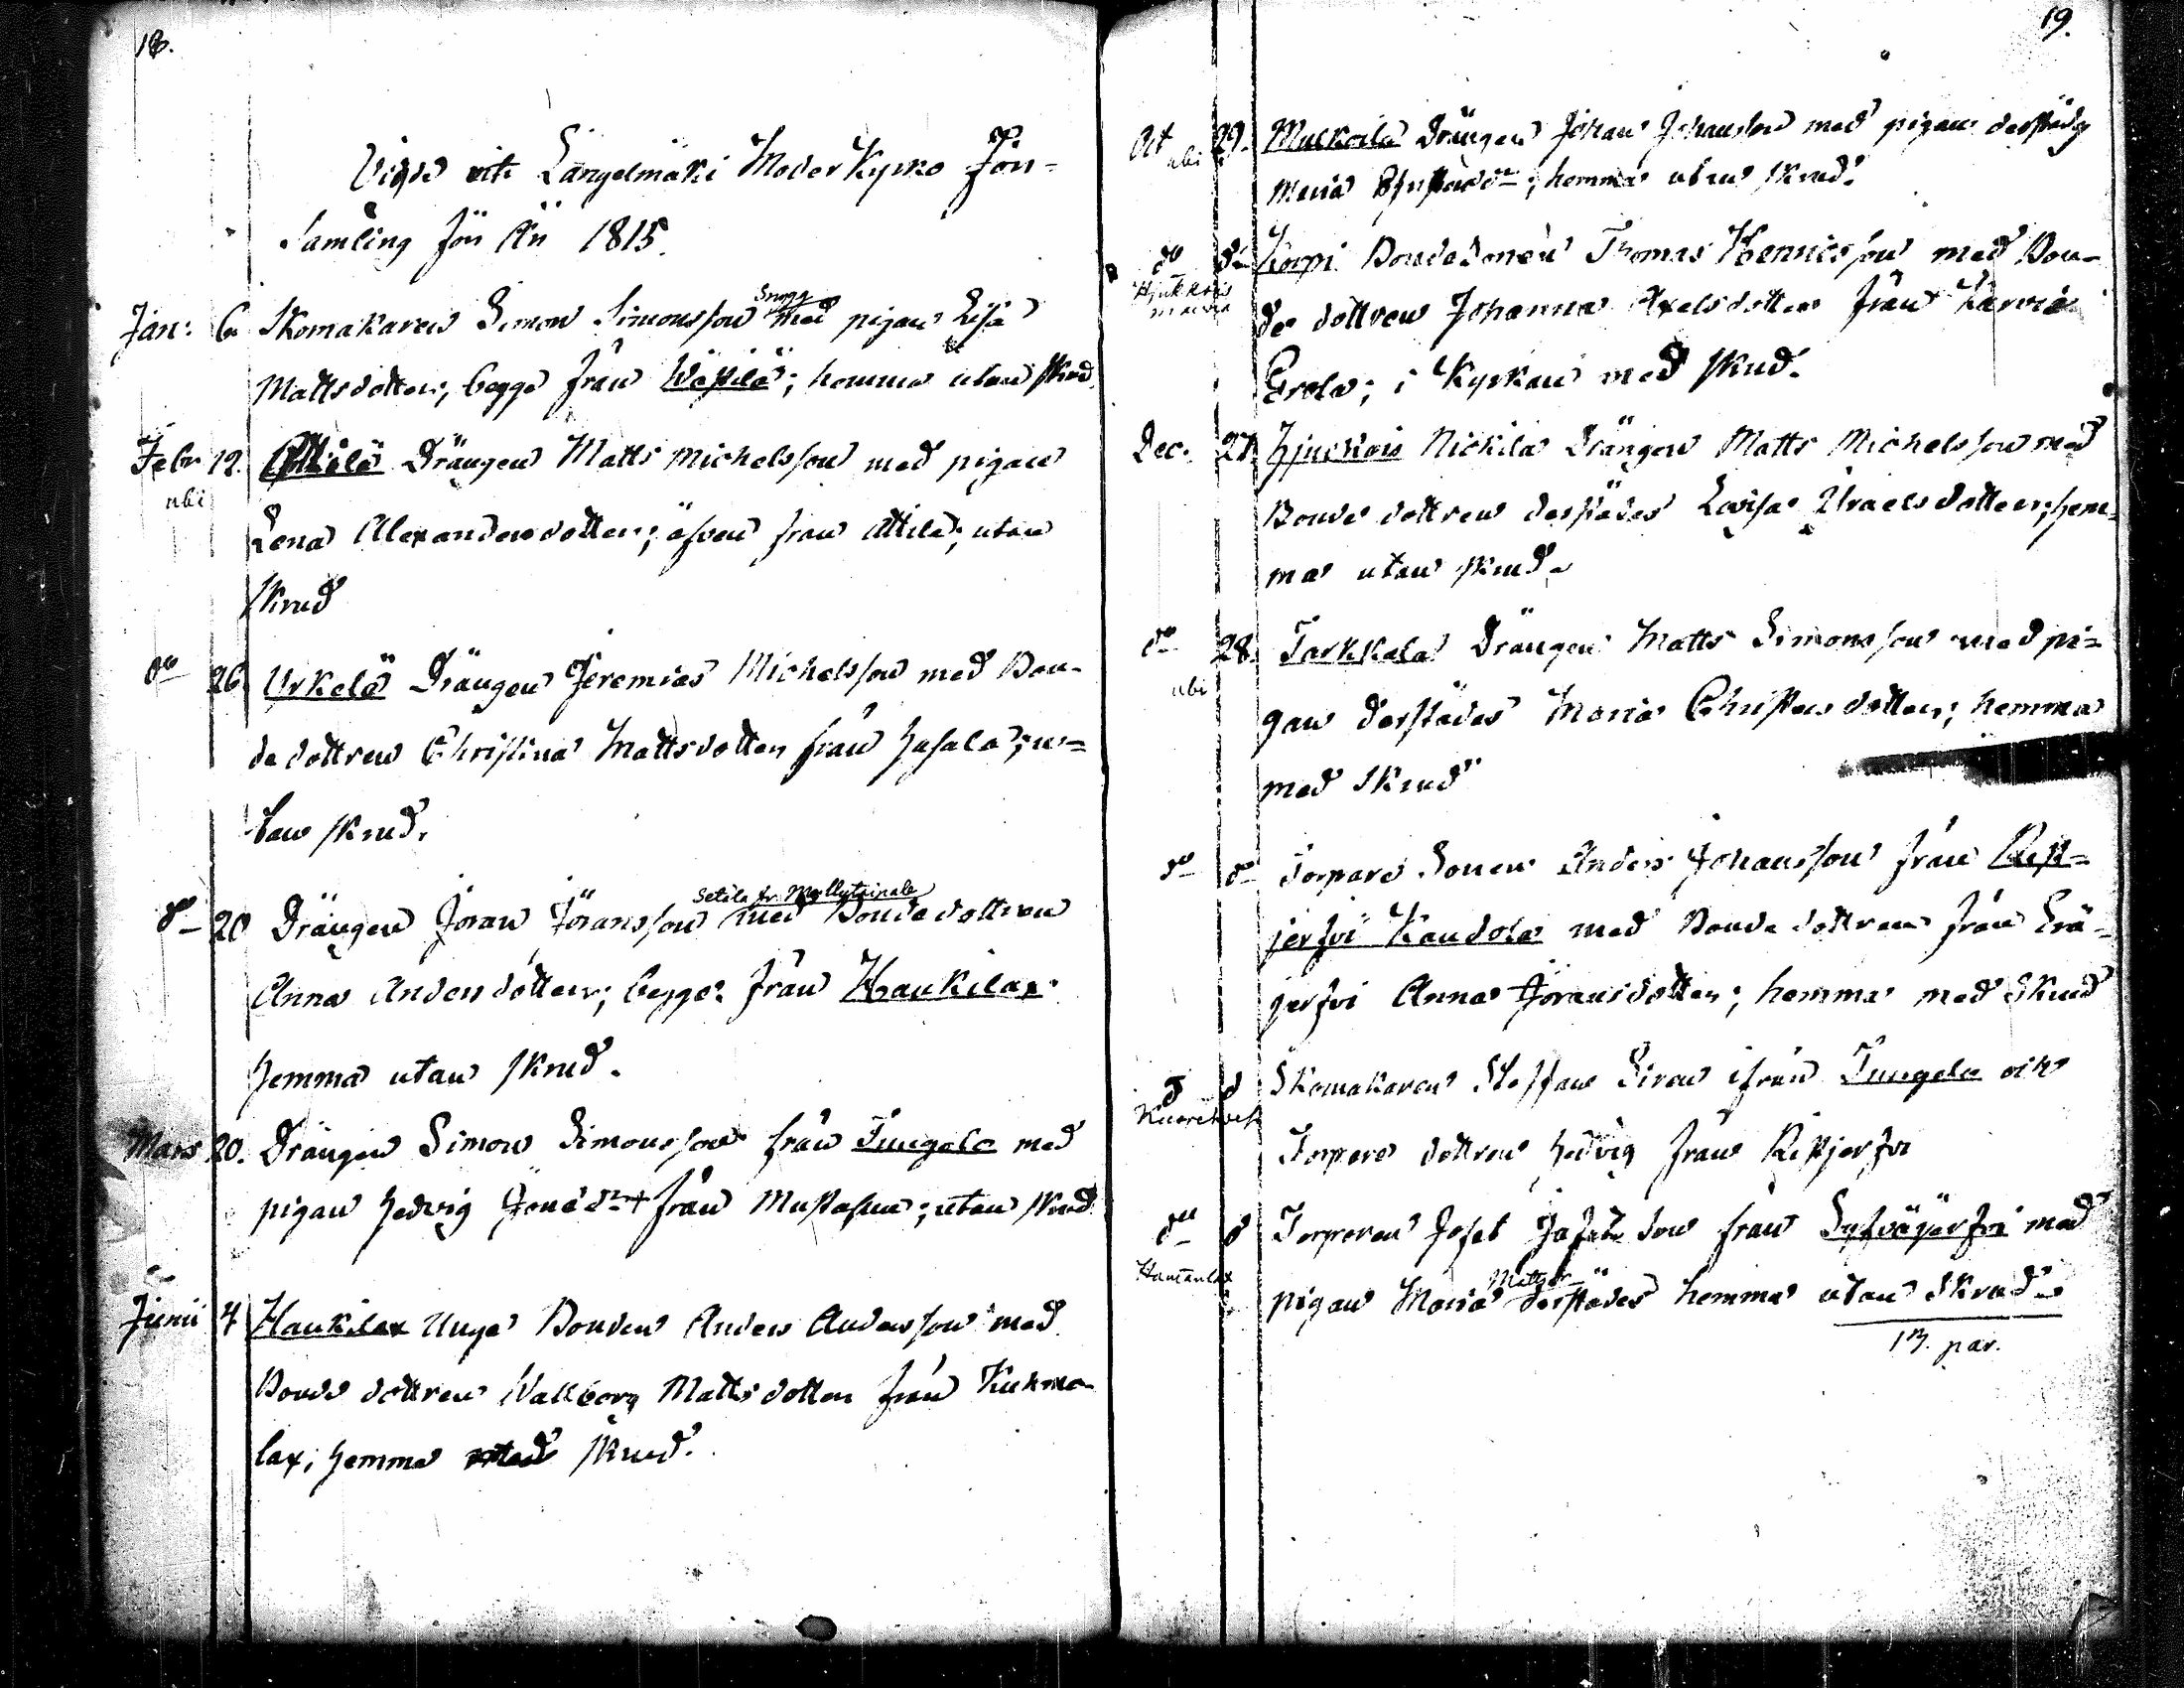 18.
Vigde uti Längelmäki Moder Kyrko För-
samling för År 1815.
Snygg
Jan: 6 Skomakaren Simon Simonsson med pigan Lisa
Mattsdotter, begge från Wästilä; hemma utan skrud
Febr 12. Attila Drängen Matts Michelsson med pigan
ubi
Lena Alexandersdotter; äfven från Attila; utan
skrud
do 26 Urkelä Drängen Jeremias Michelsson med Bon-
de dottren Christina Mattsdotter från; u-
tan skrud.
Setälä fr.
do 20 Drängen Jöran Jöransson med Bonde dottren
Anna Andersdotter; begge från Haukilax
hemma utan skrud.
Mars 20. Drängen Simon Simonsson från Tungela med
pigan Hedvig från; utan skrud
Junii 4 Haukilax Unga Bonden Anders Andersson med
Bonde dottren Wallborg Mattsdotter från Kuhma-
lax; hemma med skrud.
19.
Oct 29. Muckoila Drängen Johan Johansson med pigan derstädes
ubi
Maria; hemma utan skrud.
do do Korpi Bonde Sonen Thomas Henricsson med Bon-
de dottren Johanna Axelsdotter från
Erola; i Kyrkan med skrud.
Dec. 27 Hjuckois Nickila Drängen Matts Michelsson med
Bonde dottren derstädes Lovisa Israelsdotter; hem-
ma utan skrud.
do 28. Tarkkala Drängen Matts Simonsson med pi-
ubi
gan derstädes Maria Christersdotter; hemma
med skrud
do do Torpare Sonen Anders Johansson från Rist-
jerfvi Kaudola med Bonde dottren från Erä-
jerfvi Anna Jöransdotter; hemma med skrud
d d Skomakaren Staffan Siren ifrån Tungela och
Torpare dottren Hedvig från Ristjerfvi
do d Torparen Josef Josefsson från Sysväjerfvi med
pigan Maria derstädes hemma utan skrud
13. par.